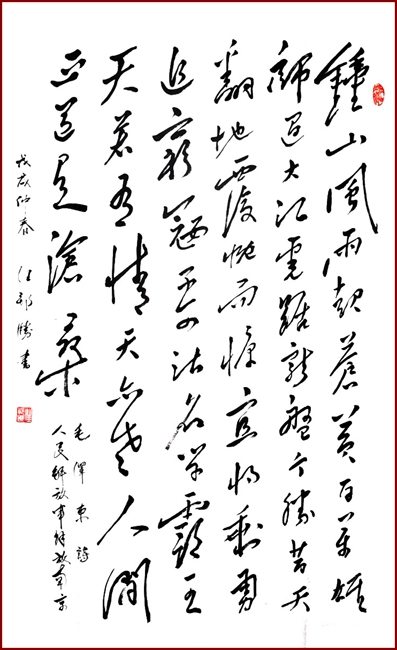 鍾山風雨起蒼黃百萬雄
師過大江虎踞龍盤今勝昔天
翻地覆慨而慷宜將剩勇
追窮寇不可沽名學霸王
天若有情天亦老人間
正道是滄桑
毛澤東詩
人民解放軍解放南京
仲春
書